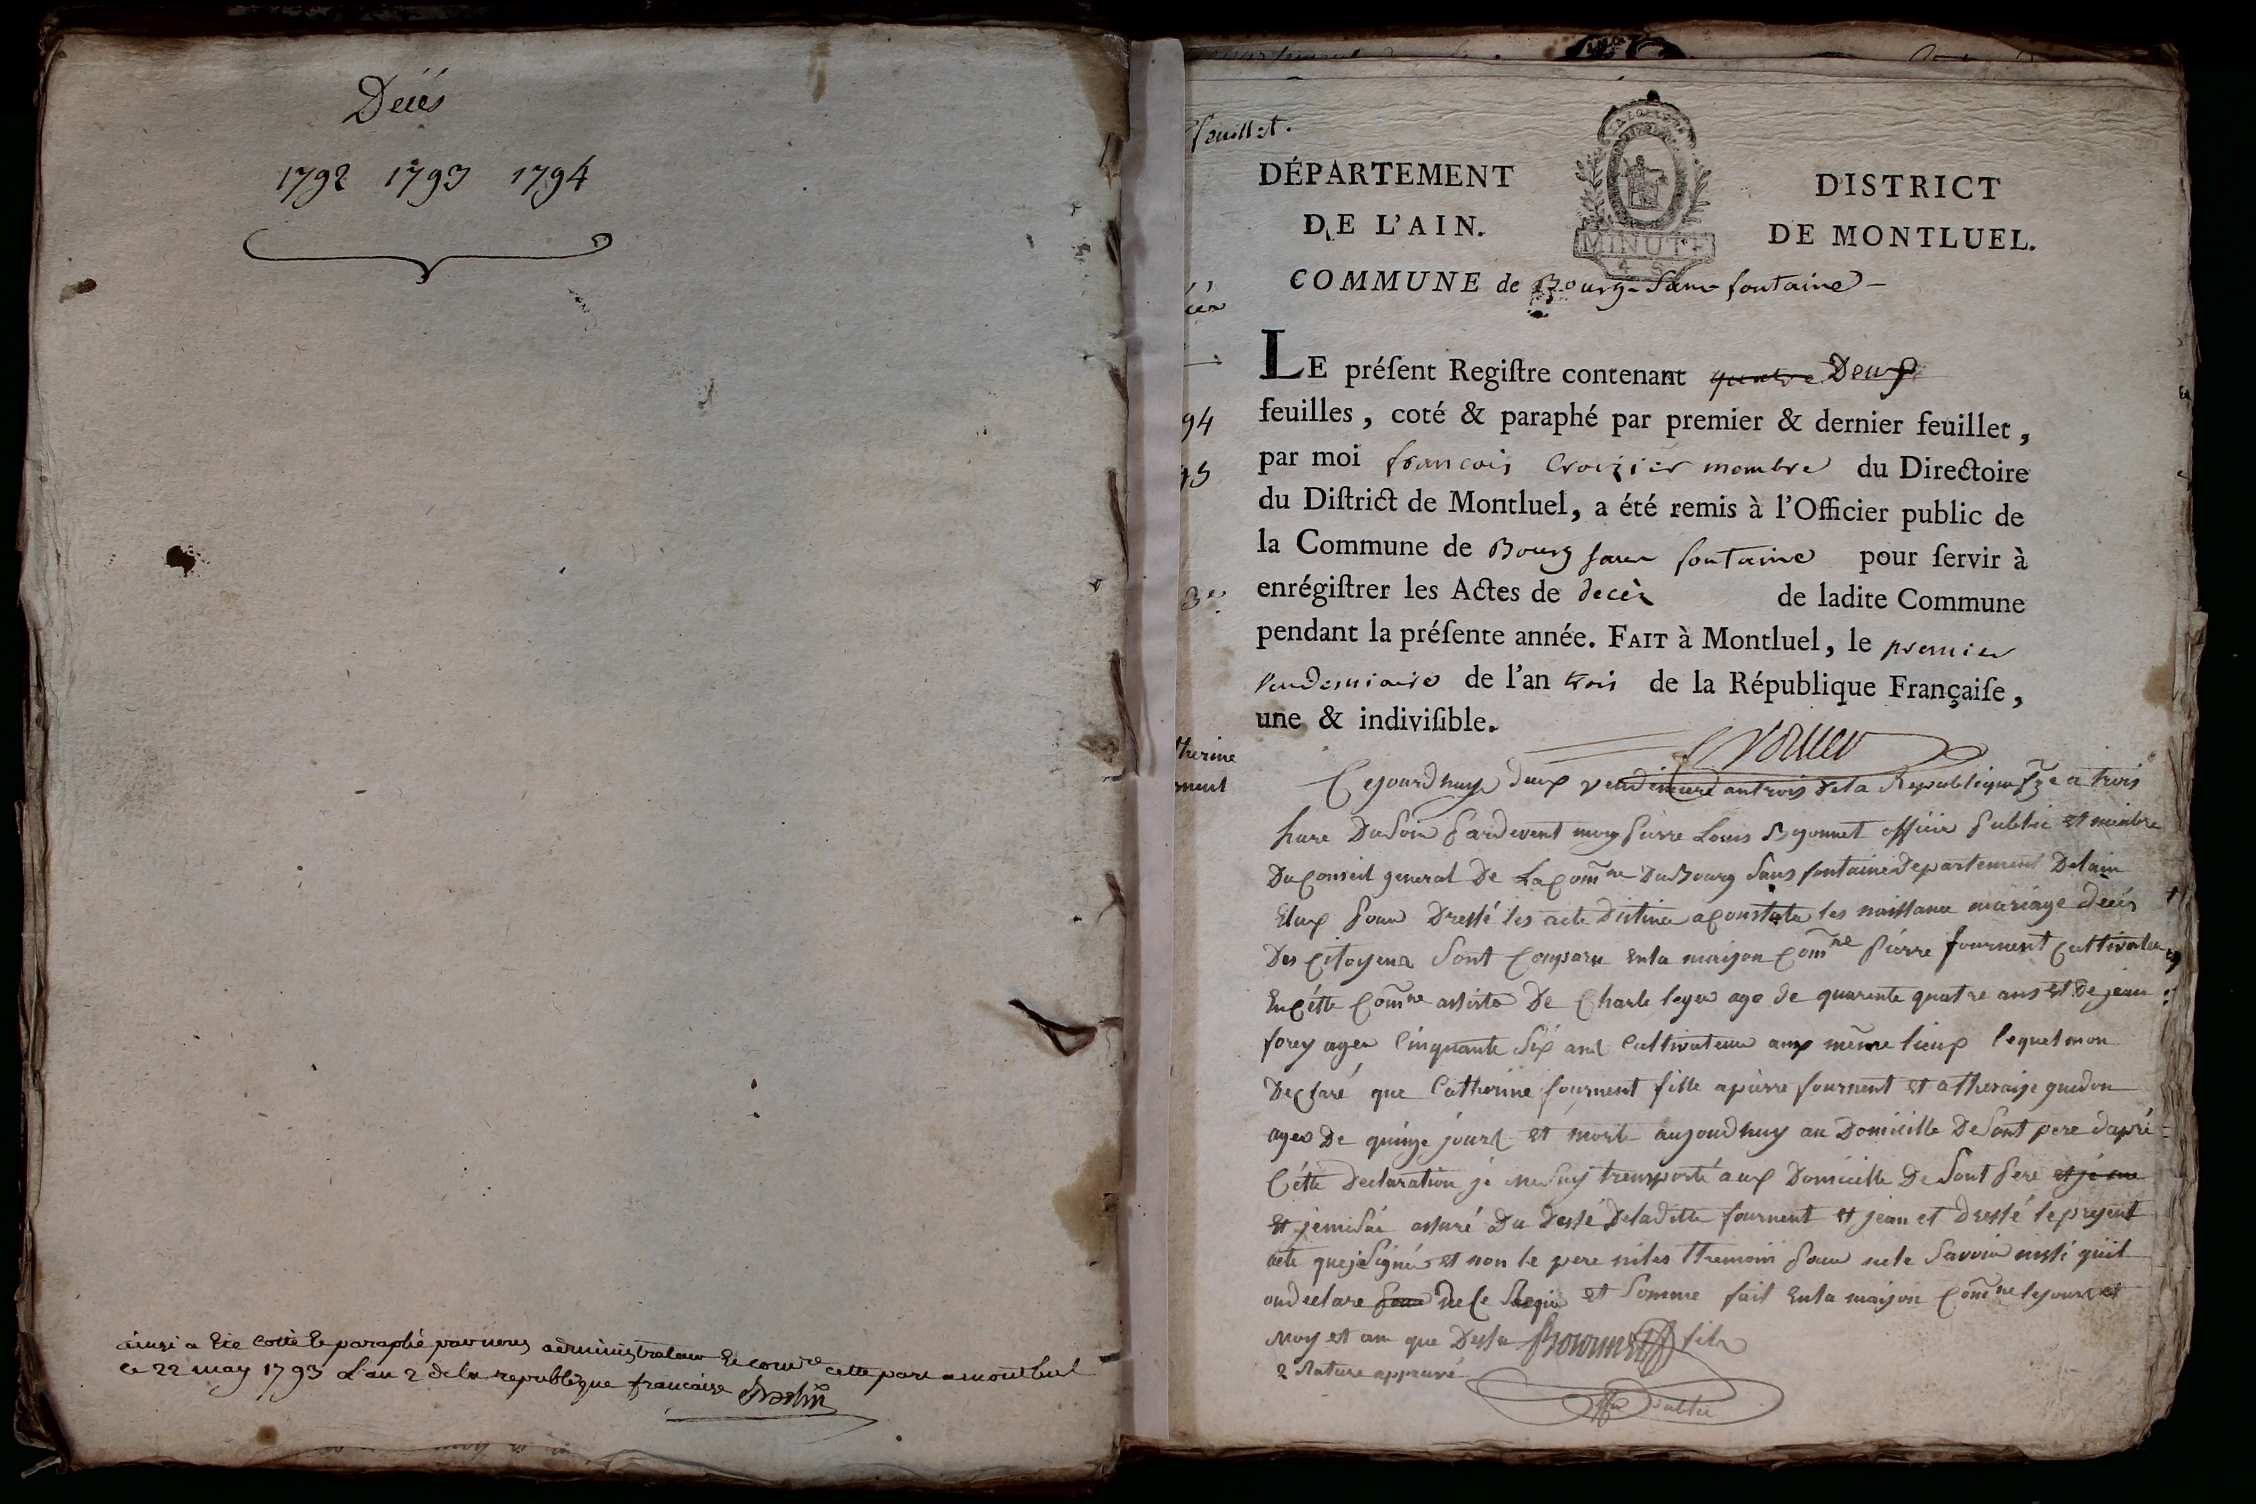 Décés
1792 1793 1794
ainsi a été cotté & paraphé par nous administrateur & comre cette part a montluel
ce 22 may 1793 L'an 2 de la republique francaise
feuillet.
94
therine
rnent
DÉPARTEMENT
DE L'AIN.
MINUTE
DISTRICT
DE MONTLUEL.
COMMUNE de Bourg Sans fontaine
LE préſent Regiſtre contenant quatre Deux
feuilles, coté & paraphé par premier & dernier feuillet,
par moi francois Croizier membre du Directoire
du Diſtrict de Montluel, a été remis à l'Officier public de
la Commune de Bourg sans fontaine pour ſervir à
enrégiſtrer les Actes de decès de ladite Commune
pendant la préſente année. FAIT à Montluel, le premier
Vendemiaire de l'an trois de la République Françaiſe,
une & indiviſible.
Cejourdhuy deux vendimiere an trois de la Republique fze a trois
hure Du Soir pardevent moy pierre Louis officier public et membre
Du Conseil general De La Comne Du Bourg Sans fontaine Departement Delain
Elux pour Dressé les acte Distine a Constate les naissance mariage décés
Des Citoyens Sont Comparu en la maison Comne pierre fournent Cultivateur
En Cétte Comne assisté De Charle leger age de quarente quatre ans et De jean
forey agea Cinquante Six ans Cultivateur aux même lieux lequel mon
Declaré que Catherine fournent fille a pierre fournent et a theraise guedon
agea De quinze jours et morte aujourdhuy au Domicille De Sont pere dapré
Cétte Declaration je me Suy transporté aux Domicille De Sont pere et je me
Et je mi Sui assuré Du Desse De laditte fournent et jean et Dressé le present
acte que je Signé et non le pere ni les thremoin pour ne le Savoir nissi quil
on declare pour De Ce et Somme fait En la maison Comne le jour et
Moy et an que Dessu fils
2 Rature appruvé
public